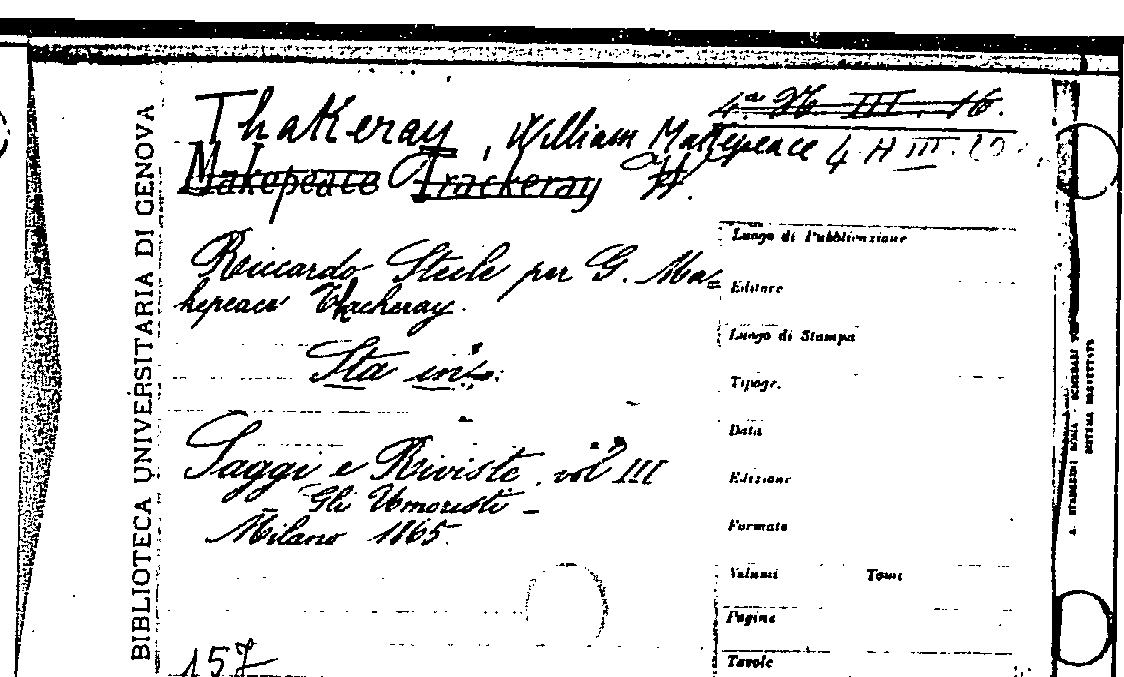 4.a H. III. 16.
Thakeray, William Makepeace 4 H III.
Makepeace Trackeray W.
Riccardo Steele per G. Ma=
kepeace Thackeray.
Sta in:
Saggi e Riviste vol III
Gli Umoristi -
Milano 1865.
157
BIBLIOTECA UNIVERSITARIA DI GENOVA
Luogo di Pubblicazione
Editore
Luogo di Stampa
Tipogr.
Data
Edizione
Formato
Volumi Tomi
Pagine
Tavole